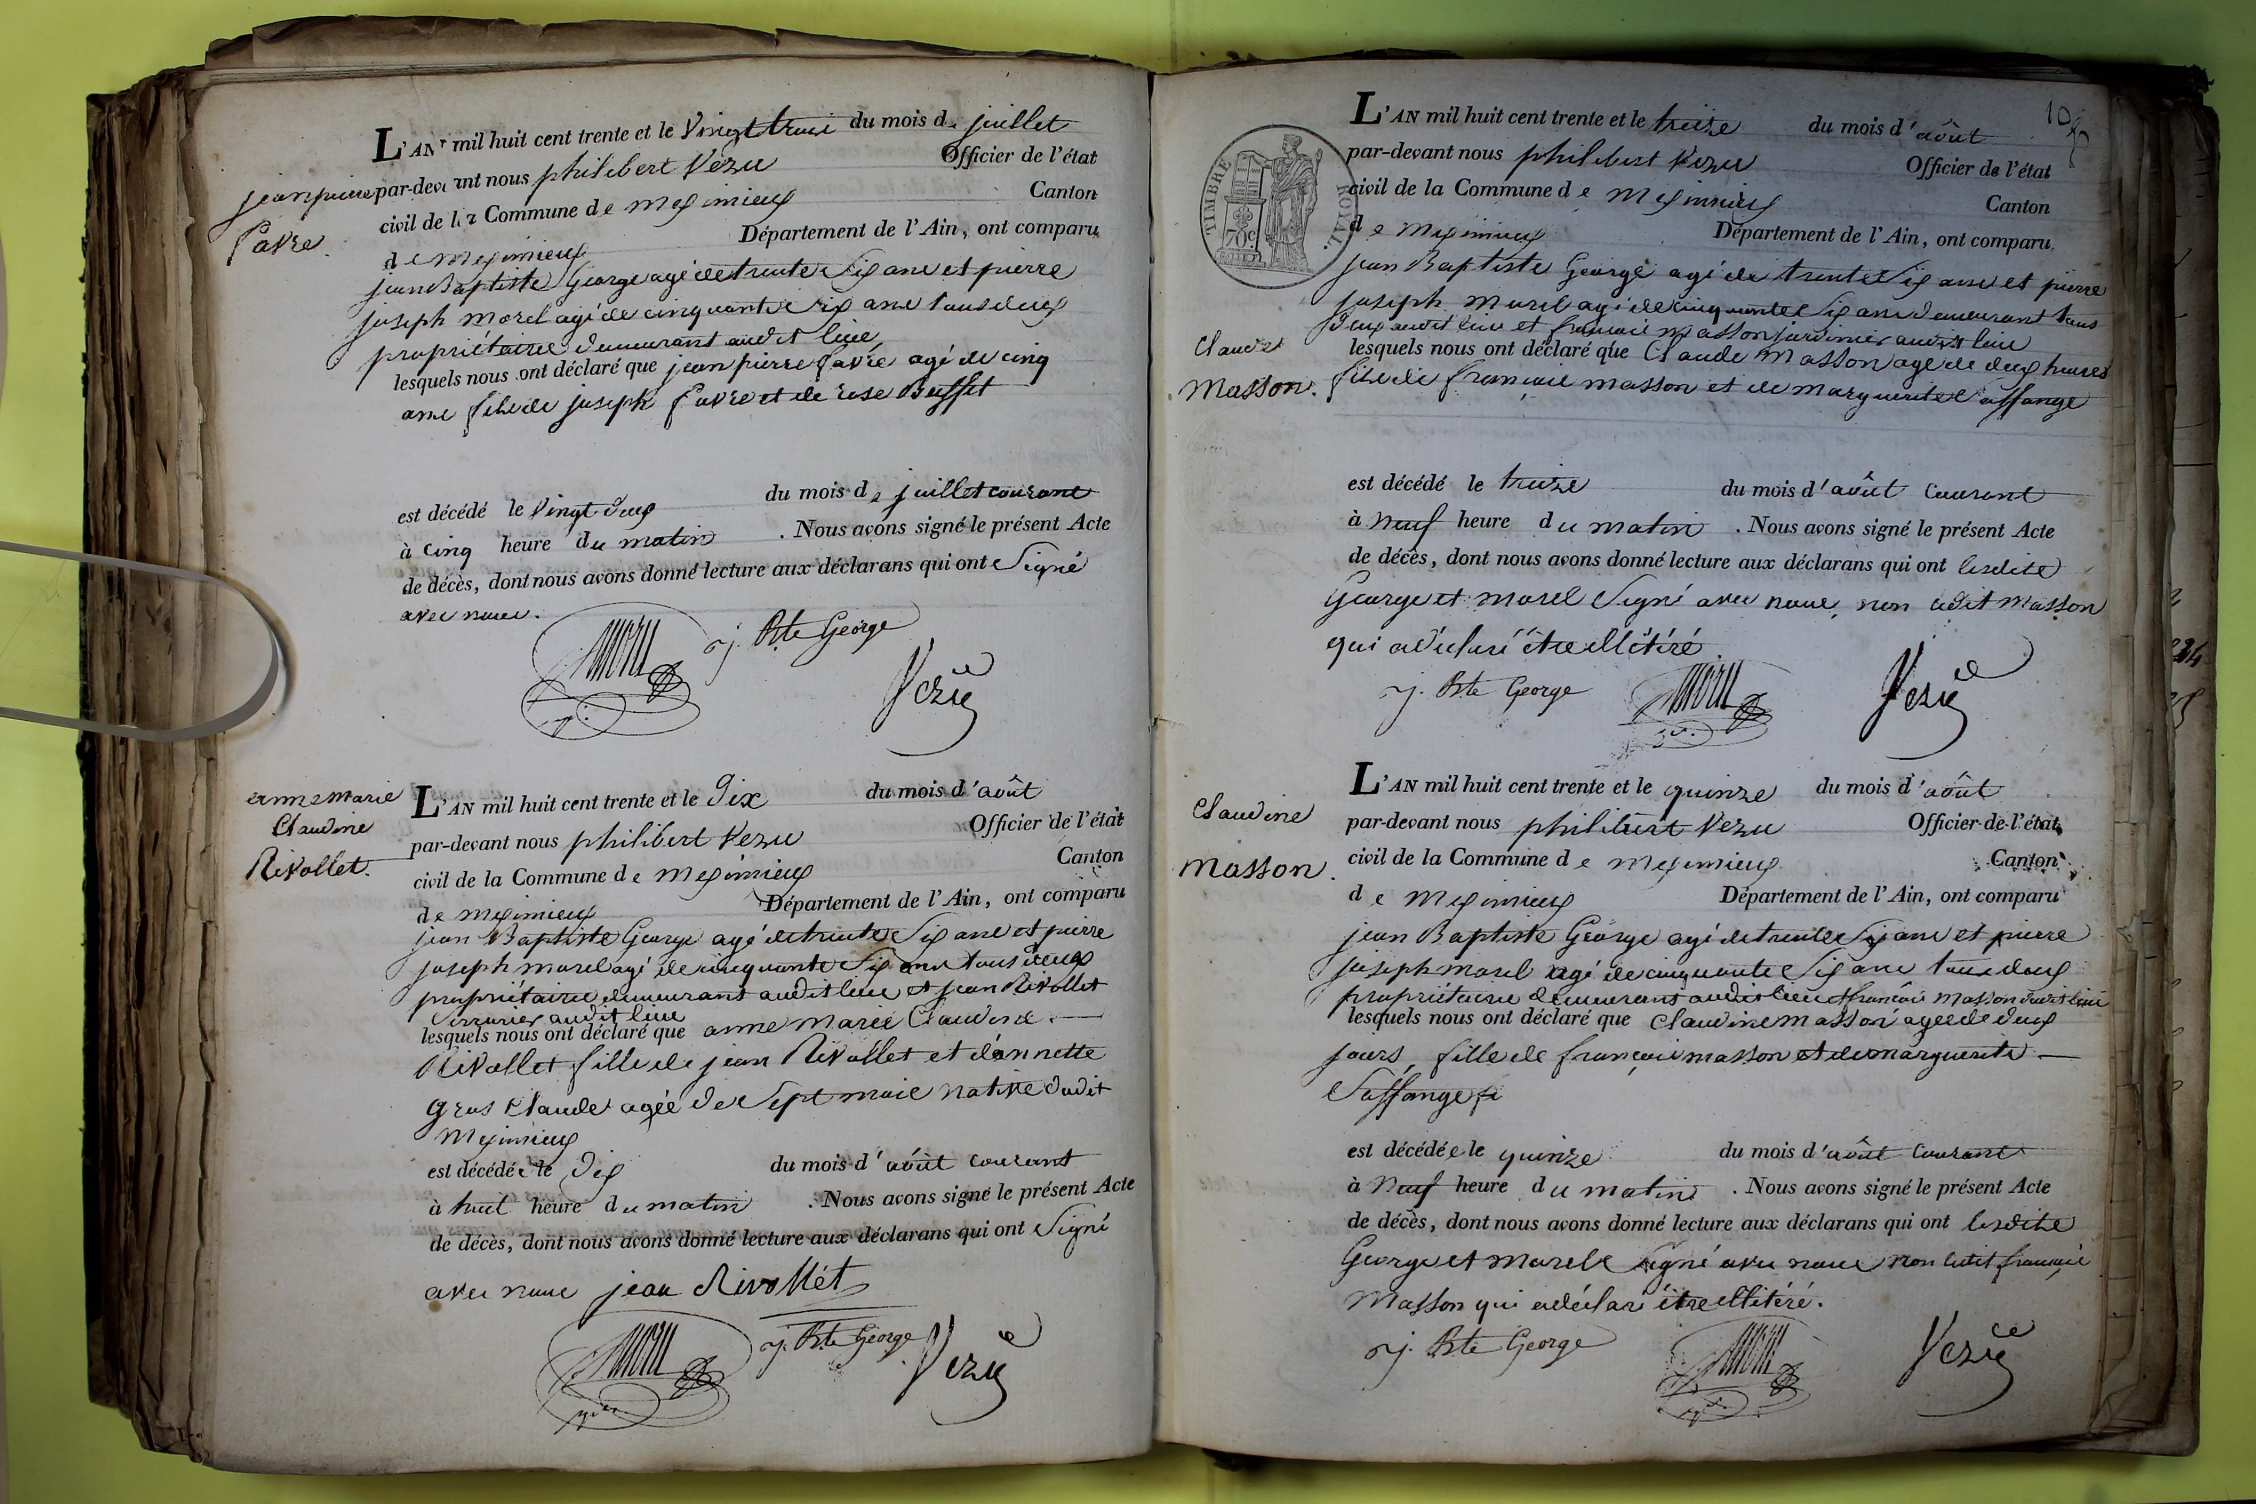 jean pierre
favre.
L'AN mil huit cent trente et le vingt trois du mois de juillet
par-devant nous philibert Vezu Officier de l'état
civil de la Commune de meximieux Canton
de meximieux Département de l'Ain, ont comparu
jean Baptiste George agé de trente six ans et pierre
joseph morel agé de cinquante six ans tous deux
propriétaires demeurant audit lieu
lesquels nous ont déclaré que jean pierre favre agé de cinq
ans fils de joseph favre et de rose Buffet
est décédé le vingt deux du mois de juillet courant
à cinq heure du matin . Nous avons signé le présent Acte
de décès, dont nous avons donné lecture aux déclarans qui ont signé
avec nous.
morel j. Bte George
Vezu
anne marie
Claudine
Rivollet.
L'AN mil huit cent trente et le dix du mois d'août
par-devant nous philibert Vezu Officier de l'état
civil de la Commune de meximieux Canton
de meximieux Département de l'Ain, ont comparu
jean Baptiste George agé de trente six ans et pierre
joseph morel agé de cinquante six ans tous deux
propriétaires demeurans audit lieu et jean Rivollet
serrurier audit lieu
lesquels nous ont déclaré que anne marie Claudine
Rivollet fille de jean Rivollet et d'annette
gros Claude agée de sept mois native dudit
meximieux
est décédée le dix du mois d'août courant
à huit heure du matin . Nous avons signé le présent Acte
de décès, dont nous avons donné lecture aux déclarans qui ont signé
avec nous jean Rivollét
morel j. Bte George Vezu
TIMBRE ROYAL.
70c
L'AN mil huit cent trente et le treize du mois d'août
par-devant nous philibert Vezu Officier de l'état
civil de la Commune de meximieux Canton
de meximieux Département de l'Ain, ont comparu
jean Baptiste George agé de trente six ans et pierre
joseph morel agé de cinquante six ans demeurant tous
deux audit lieu et françois masson jardinier audit lieu
Claude
Masson.
lesquels nous ont déclaré que Claude Masson agé de deux heures
fils de françois masson et de marguerite Saffange
est décédé le treize du mois d'août courant
à neuf heure du matin . Nous avons signé le présent Acte
de décès, dont nous avons donné lecture aux déclarans qui ont lesdits
George et morel signé avec nous, non ledit Masson
qui a déclaré être illétéré
j. Bte George morel Vezu
Claudine
Masson.
L'AN mil huit cent trente et le quinze du mois d'août
par-devant nous philibert Vezu Officier de l'état
civil de la Commune de meximieux Canton
de meximieux Département de l'Ain, ont comparu
jean Baptiste George agé de trente six ans et pierre
joseph morel agé de cinquante six ans tous deux
propriétaires demeurans audit lieu et françois Masson dudit lieu
lesquels nous ont déclaré que claudine masson agée de deux
jours fille de françois masson et de marguerite
Saffange
est décédée le quinze du mois d'août courant
à neuf heure du matin . Nous avons signé le présent Acte
de décès, dont nous avons donné lecture aux déclarans qui ont lesdits
George et morel signé avec nous non ledit françois
Masson qui a déclaré être illétéré.
j. Bte George morel Vezu